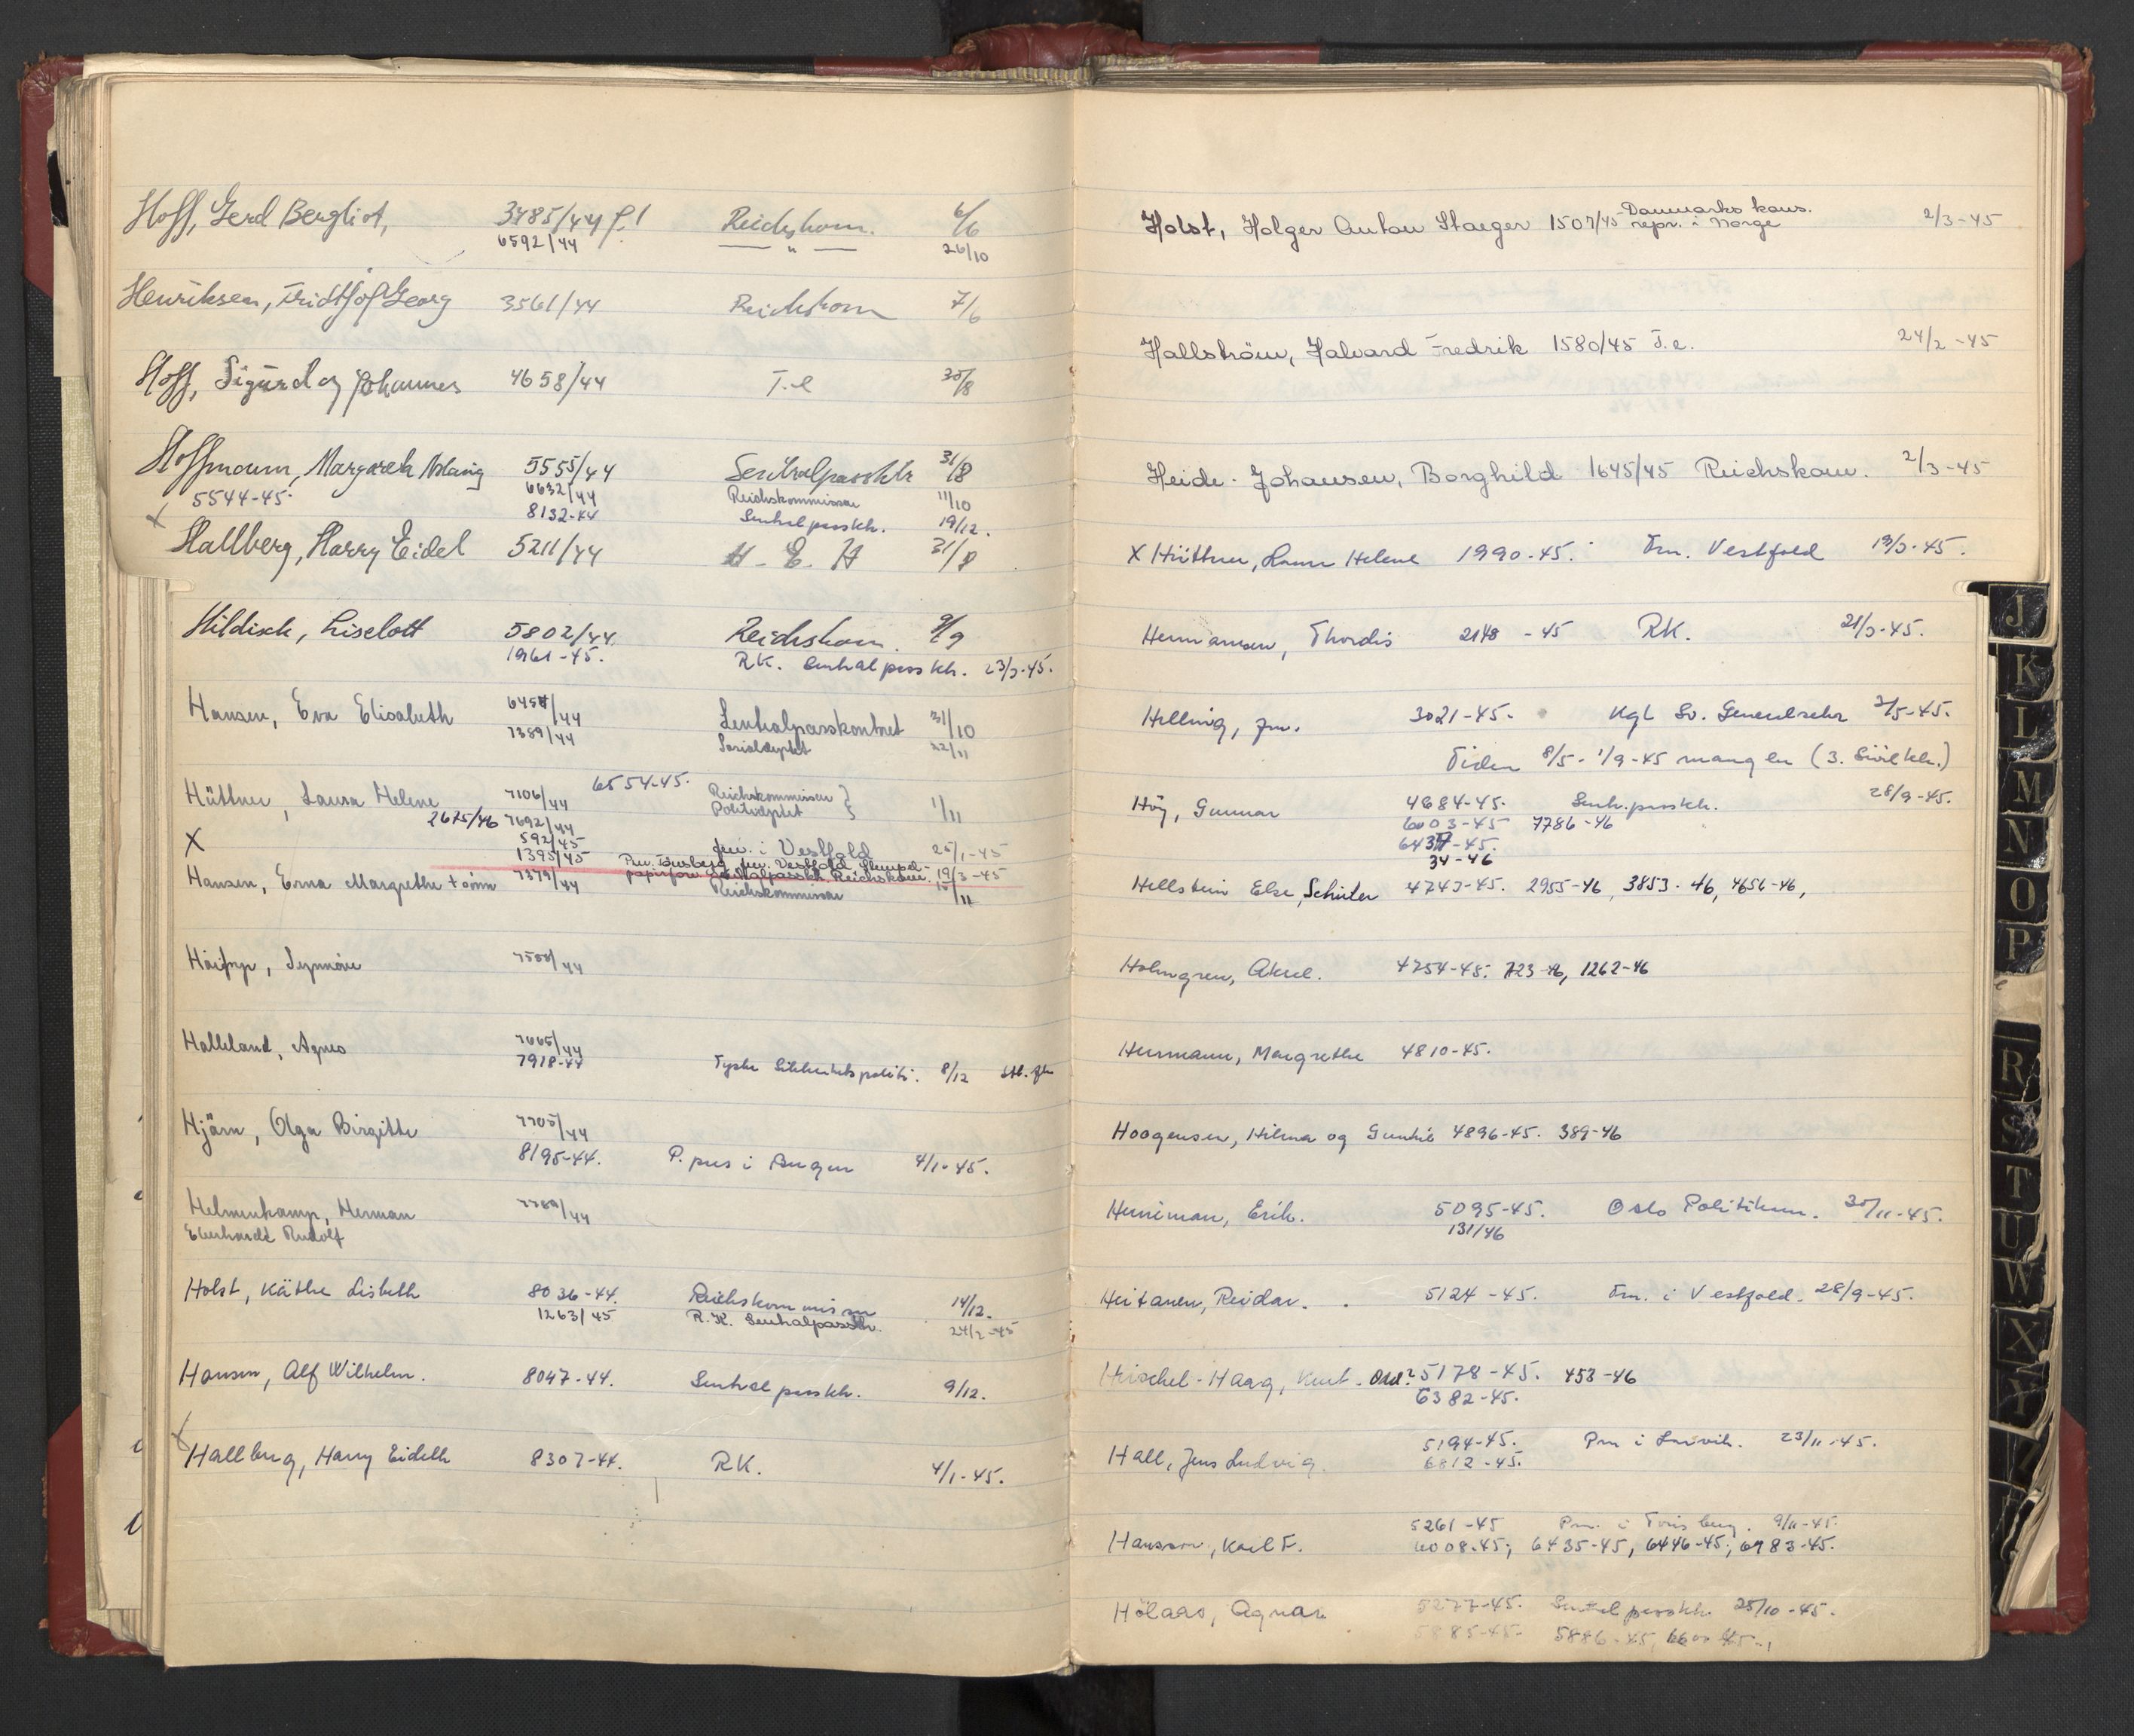 Hoff, Gerd Bergliot, 3485/44 f.l Reichskom. 6/6
6592/44 — " — 26/10
Henriksen, Fridtjof Georg 3561/44 Reichskom 7/6
Hoff, Sigurd og Johannes 4658/44 T.e 30/8
Hoffmann, Margarete 5555/44 Sentralpassktr 31/8
5544-45. 6632/44 Reichskommissar 11/10
8132-44 Sentralpasskk. 19/12.
X Hallberg, Harry Eidel 5211/44 H. E. H 31/8
Hildisch, Liselott 5802/44. Reichskom. 9/9
1961-45. RK. Sentralpasskk. 23/3-45.
Hansen, Eva Elisabeth 6454/44 Sentralpasskontoret 31/10
7389/44 Sosialdeptet 22/11
Hüttner, Laura Helene 7106/44 6554-45. Reichskommissar } 1/11
2675/46 7692/44 Politideptet
X 592/45 fm. i Vestfold 25/1-45
1395/45 Pm. Tønsberg, fm. Vestfold Stempel-
papirforv. Sentralpasskk. Reichskom. 19/3-45
Hansen, Erna Margrethe + sønn 7379/44 Reichskommissar 10/11
7500/44
Halleland, Agnes 7665/44
7918-44 Tyske Sikkerhetspoliti. 8/12
Hjärn, Olga Birgitte 7705/44
8195-44. P. pres i Bergen 4/1-45.
Helmenkamp, Herman 7780/44
Eberhardt Rudolf
Holst, Käthe Lisbeth 8036-44. Reichskommissar 14/12.
1263/45 R.K. Sentralpasskk. 24/2-45
Hansen, Alf Wilhelm. 8047-44. Sentralpasskk. 9/12.
X Hallberg, Harry Eideth 8307-44. RK. 4/1-45.
Holst, Holger Anton Staeger 1507/45 Danmarks kons.
repr. i Norge 2/3-45
Hallström, Halvard Fredrik 1580/45 T.e. 24/2-45
Heide-Johansen, Borghild 1645/45 Reichskom. 2/3-45
X Hüttner, Laura Helene 1990-45. Fm. Vestfold 19/3-45.
Hermansen, Thordis 2148-45 RK. 21/3-45.
Helling, Jm. 3021-45. Kgl Sv. Generalsekr 3/5-45.
Tiden 8/5-1/9-45 mangler (3. Sivilkk.)
Höy, Gunnar 4684-45. Sentr.passkk. 28/9-45.
6003-45 7786-46
6437-45.
34-46
Hellstein Else, Schüler 4743-45. 2955-46, 3853-46, 4656-46,
Holmgren, Aksel. 4754-45. 723-46, 1262-46
Hermann, Margrethe 4810-45.
Hoogensen, Hilma og 4896-45. 389-46
Henriman, Erik. 5095-45. Oslo Politikam. 30/11-45.
131/46
Heitanen, Reidar. 5124-45. Fm. i Vestfold. 28/9-45.
Hrischel-Haag, Kurt. 5178-45. 453-46
6382-45.
Hall, Jens Ludvig. 5194-45. Pm i Larvik. 23/11-45.
6812-45.
5261-45 Pm. i Tønsberg. 9/11-45.
Hansson, Karl F. 6008-45, 6435-45, 6446-45, 6983-45.
Hölaas, Agnar 5277-45. Sentralpasskk. 25/10-45.
5885-45. 5886-45,
J
K
L
M
N
O
P
R
S
T
U
W
X
Y